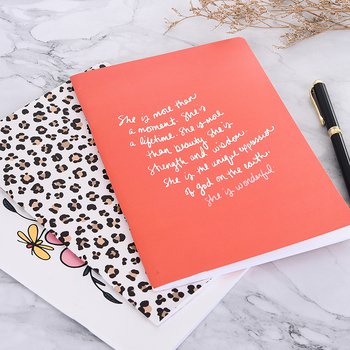 She is more than
a moment. She is
a lifetime. She is more
than beauty. She is
strength and wisdom.
She is the unique expression
of God on the earth.
she is wonderful